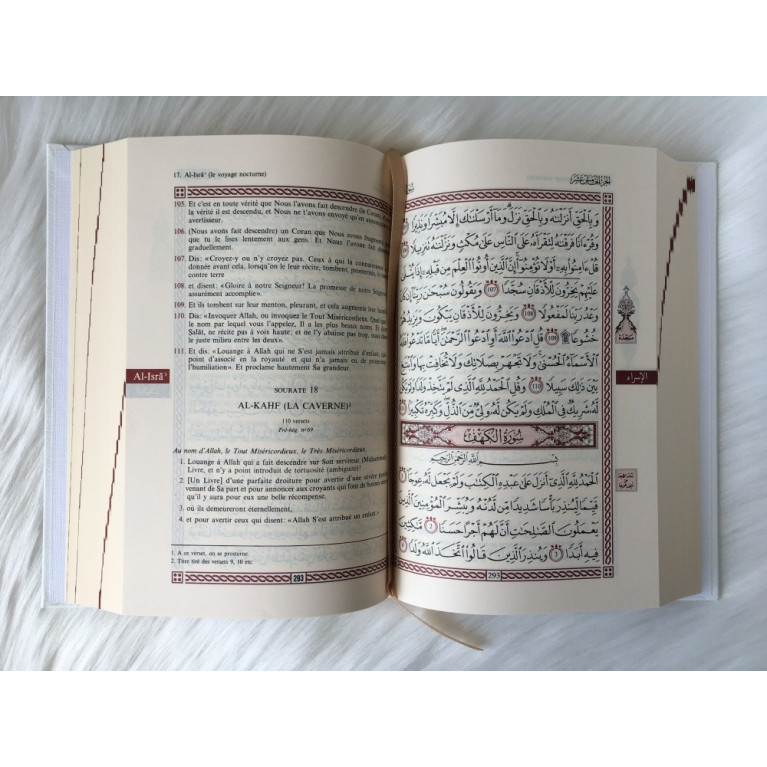 17. Al-Isrâ' (le voyage nocturne)
105. Et c'est en toute vérité que Nous l'avons fait descendre (le Coran),
la vérité il est descendu, et Nous ne t'avons envoyé qu'en
avertisseur.
106. (Nous avons fait descendre) un Coran que Nous avons
que tu le lises lentement aux gens. Et Nous l'avons fait
graduellement.
107. Dis: «Croyez-y ou n'y croyez pas. Ceux à qui la connaissance
donnée avant cela, lorsqu'on le leur récite, tombent,
contre terre
108. et disent: «Gloire à notre Seigneur! La promesse de notre
assurément accomplie».
109. Et ils tombent sur leur menton, pleurant, et cela augmente leur
110. Dis: «Invoquez Allah, ou invoquez le Tout Miséricordieux. Quel que
le nom par lequel vous l'appelez, Il a les plus beaux noms. Et dans
Salât, ne récite pas à voix haute; et ne l'y abaisse pas trop, mais
le juste milieu entre les deux».
111. Et dis: «Louange à Allah qui ne S'est jamais attribué d'enfant,
point d'associé en la royauté et qui n'a jamais eu de
l'humiliation». Et proclame hautement Sa grandeur.
Al-Isrâ'
SOURATE 18
AL-KAHF (LA CAVERNE)²
110 versets
Pré-hég. n°69
Au nom d'Allah, le Tout Miséricordieux, le Très Miséricordieux.
1. Louange à Allah qui a fait descendre sur Son serviteur
Livre, et n'y a point introduit de tortuosité (ambiguïté)!
2. [Un Livre] d'une parfaite droiture pour avertir d'une sévère
venant de Sa part et pour annoncer aux croyants qui font de bonnes
qu'il y aura pour eux une belle récompense.
3. où ils demeureront éternellement,
4. et pour avertir ceux qui disent: «Allah S'est attribué un enfant.»
1. A ce verset, on se prosterne.
2. Titre tiré des versets 9, 10 etc.
293
وَبِالْحَقِّ أَنزَلْنَٰهُ وَبِالْحَقِّ نَزَلَ وَمَا أَرْسَلْنَٰكَ إِلَّا مُبَشِّرًا وَنَذِيرًا
وَقُرْءَانًا فَرَقْنَٰهُ لِتَقْرَأَهُ عَلَى النَّاسِ عَلَىٰ مُكْثٍ وَنَزَّلْنَٰهُ تَنزِيلًا
قُلْ ءَامِنُوا بِهِ أَوْ لَا تُؤْمِنُوا إِنَّ الَّذِينَ أُوتُوا الْعِلْمَ مِن قَبْلِهِ إِذَا يُتْلَىٰ
عَلَيْهِمْ يَخِرُّونَ لِلْأَذْقَانِ سُجَّدًا 107 وَيَقُولُونَ سُبْحَٰنَ رَبِّنَا إِن كَانَ
وَعْدُ رَبِّنَا لَمَفْعُولًا 108 وَيَخِرُّونَ لِلْأَذْقَانِ يَبْكُونَ وَيَزِيدُهُمْ
خُشُوعًا ۩ 109 قُلِ ادْعُوا اللَّهَ أَوِ ادْعُوا الرَّحْمَٰنَ أَيًّا مَّا تَدْعُوا فَلَهُ
الْأَسْمَاءُ الْحُسْنَىٰ وَلَا تَجْهَرْ بِصَلَاتِكَ وَلَا تُخَافِتْ بِهَا وَابْتَغِ
بَيْنَ ذَٰلِكَ سَبِيلًا 110 وَقُلِ الْحَمْدُ لِلَّهِ الَّذِي لَمْ يَتَّخِذْ وَلَدًا وَلَمْ يَكُن
لَّهُ شَرِيكٌ فِي الْمُلْكِ وَلَمْ يَكُن لَّهُ وَلِيٌّ مِّنَ الذُّلِّ وَكَبِّرْهُ تَكْبِيرًا
سُورَةُ الْكَهْفِ
بِسْمِ اللَّهِ الرَّحْمَٰنِ الرَّحِيمِ
الْحَمْدُ لِلَّهِ الَّذِي أَنزَلَ عَلَىٰ عَبْدِهِ الْكِتَٰبَ وَلَمْ يَجْعَل لَّهُ عِوَجًا
قَيِّمًا لِّيُنذِرَ بَأْسًا شَدِيدًا مِّن لَّدُنْهُ وَيُبَشِّرَ الْمُؤْمِنِينَ الَّذِينَ
يَعْمَلُونَ الصَّٰلِحَٰتِ أَنَّ لَهُمْ أَجْرًا حَسَنًا 2 مَّٰكِثِينَ
فِيهِ أَبَدًا 3 وَيُنذِرَ الَّذِينَ قَالُوا اتَّخَذَ اللَّهُ وَلَدًا
الإسراء
293